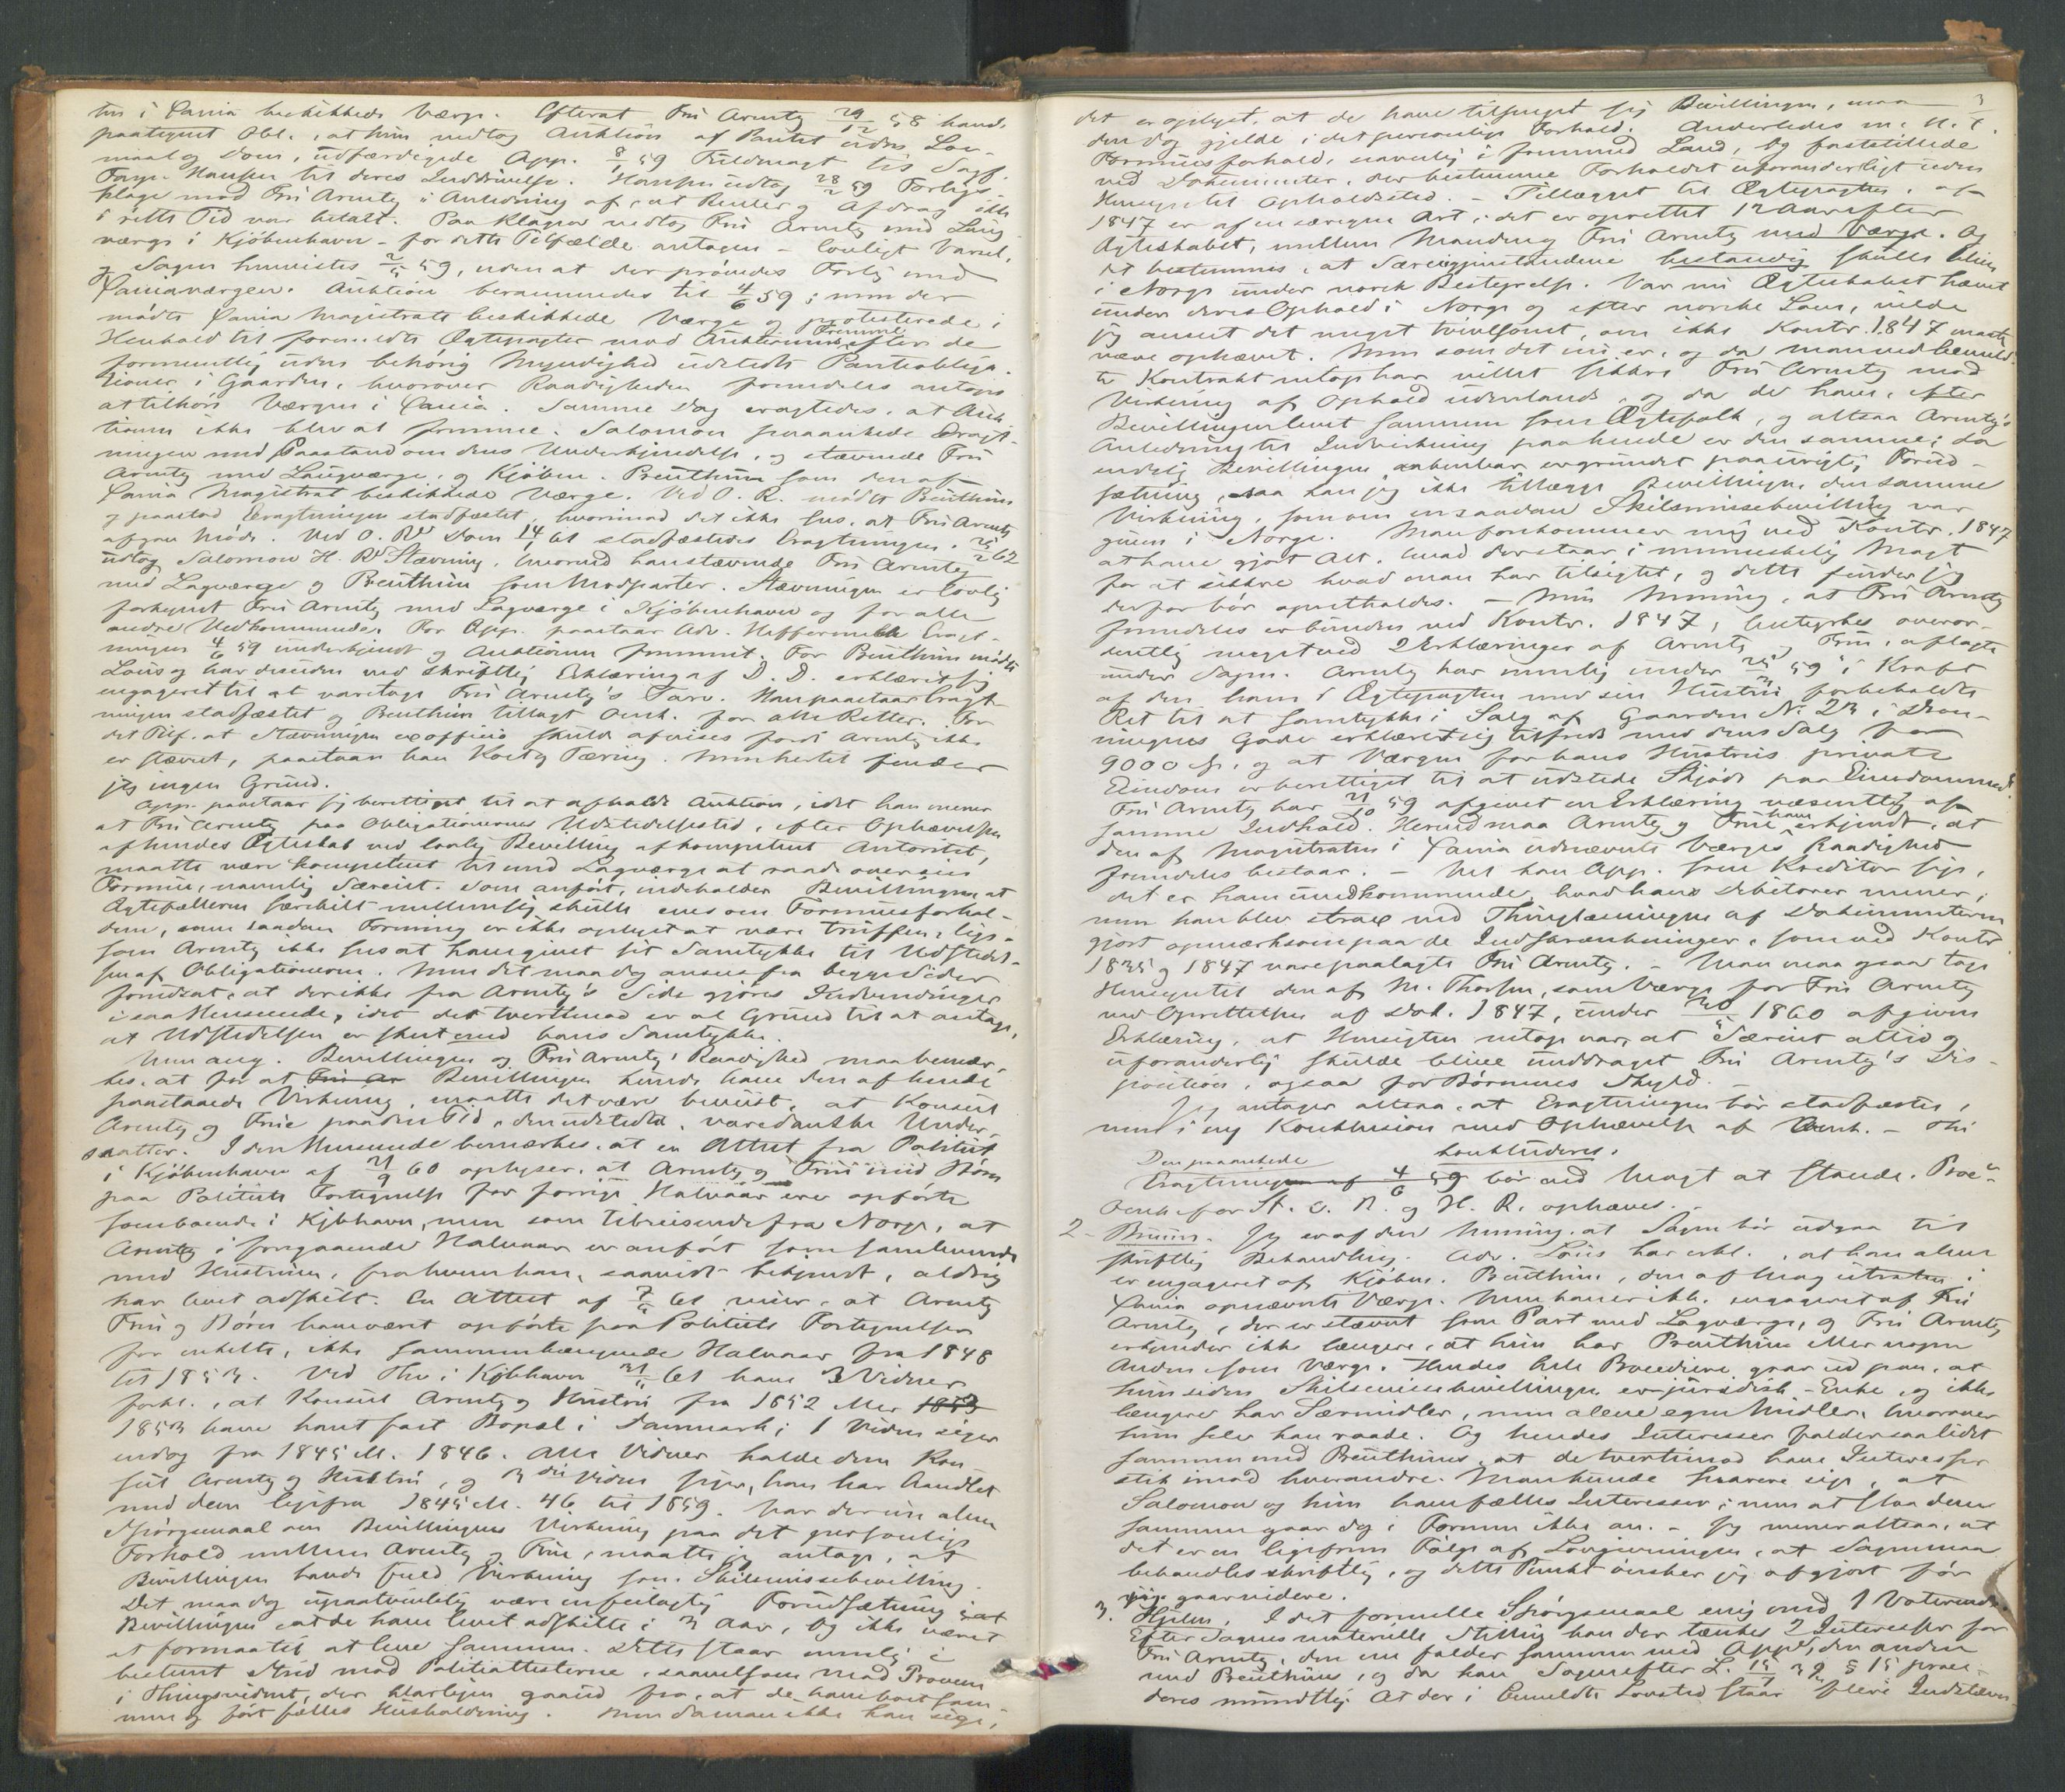 ten i Xania beskikkede Værge. Efterat Fru Arentz 29/12 58 havde
paategnet Obl., at hun vedtog Auktion af Pantet uden Lov-
maal og Dom, udfærdigede App. 8/1 59 Fuldmagt til Sagf.
Hansen til deres Inddrivelse. Hansen udtog 28/2 59 Forligs-
klage mod Fru Arentz i Anledning af, at Renter og Afdrag ikke
i rette Tid var betalt. Paa Klagen vedtog Fru Arentz med Laug-
værge i Kjöbenhavn – for dette Tilfælde antagen – lovligt Varsel,
og Sagen henvistes 2/5 59, uden at der prövedes Forlig med
Xaniaværgen. Auktion berammedes til 4/6 59; men der
mödte Xania Magistrats beskikkede Værge og protesterede i
Henhold til formeldte Ægtepagter mod Auktionens Fremme efter de
formentlig uden behörig Myndighed udstedte Panteobliga-
tioner i Gaarden, hvorover Raadigheden fremdeles antoges
at tilhöre Værgen i Xania. Samme Dag eragtedes, at Auk-
tionen ikke blev at fremme. Salomon paaankede Eragt-
ningen med Paastand om dens Underkjendelse, og stævnede Fru
Arentz med Laugværge, og Kjöbm. Preuthun som den af
Xania Magistrat beskikkede Værge. Ved O. R. mödte Preuthun
og paastod Eragtningen stadfæstet, hvorimod det ikke sees, at Fru Arentz
afgav Möde. Ved O. Rs Dom 14/1 61 stadfæstedes Eragtningen. 25/2 62
udtog Salomon H. Rs Stævning, hvorved han stævnede Fru Arentz
med Lagværge og Preuthun som Modparter. Stævningen er lovlig
forkyndt Fru Arentz med Lagværge i Kjöbenhavn og for alle
andre Vedkommende. For App. paastaar Adv. Hoffermehl Eragt-
ningen 4/6 59 underkjendt og Auktionen fremmet. For Preuthun mödte
Lous og har desuden ved skriftlig Erklæring af D. D. erklæret sig
engageret til at varetage Fru Arentz's Tarv. Han paastaar Eragt-
ningen stadfæstet og Preuthun tillagt Omk. for alle Retter. For
det Tilf. at Stævningen ex officio skulde afvises fordi Arentz ikke
er stævnet, paastaar han Kost og Tæring. Men hertil finder
jeg ingen Grund.
App. paastaar sig berettiget til at afholde Auktion, idet han mener
at Fru Arentz paa Obligationernes Udstedelsestid, efter Ophævelsen
af hendes Ægteskab ved lovlig Bevilling af kompetent Autoritet,
maatte være kompetent til med Lagværge at raade over sin
Formue, navnlig Særeiet. Som anfört, indeholder Bevillingen at
Ægtefællerne særskilt mellem sig skulle enes om Formuesforhol-
dene, som saadan Forening er ikke oplyst at være truffen, lige-
som Arentz ikke sees at have givet sit Samtykke til Udstedel-
sen af Obligationerne. Men det maa dog ansees fra begge Sider
forudsat, at der ikke fra Arentz's Side gjöres Indvendinger
i saa Henseende, idet det tvertimod er al Grund til at antage,
at Udstedelsen er skeet med hans Samtykke.
Men ang. Bevillingen og Fru Arentz's Raadighed maa bemær-
kes, at for at Bevillingen kunde have den af hende
paastaaede Virkning, maatte det være beviist, at Konsul
Arentz og Frue paa den Tid, den udstedtes, vare danske Under-
saatter. I den Henseende bemærkes, at en Attest fra Politiet
i Kjöbenhavn af 21/9 60 oplyser, at Arentz og Frue med Börn
paa Politiets Fortegnelse for forrige Halvaar ere opförte
som boende i Kjbhavn, men som tilreisende fra Norge, at
Arentz i foregaaende Halvaar er anfört som samlevende
med Hustruen, fra hvem han, saavidt bekjendt, aldrig
har levet adskilt. En Attest af 7/5 61 viser, at Arentz
Frue og Börn have været opförte paa Politiets Fortegnelser
for enkelte, ikke sammenhængende Halvaar fra 1848
til 1853. Ved Thv. i Kjbhavn 31/5 61 have 3 Vidner
forkl., at Konsul Arentz og Hustru fra 1852 eller 1853
1853 have havt fast Bopæl i Danmark; 1 Vidne siger
endog fra 1845 ell. 1846. Alle Vidner holde dem Kon-
sul Arentz og Hustru, og 3die Vidne siger, han har handlet
med dem ligefra 1845 ell. 46 til 1859. Var der nu alene
Spörgsmaal om Bevillingens Virkning paa det personlige
Forhold mellem Arentz og Frue, maatte jeg antage, at
Bevillingen havde fuld Virkning som Skilsmissebevilling.
Det maa dog upaatvivlelig være en feilagtig Forudsætning i
Bevillingen at de have levet adskilte i 3 Aar, og ikke været
at formaa til at leve sammen. Dette staar nemlig i
bestemt Strid mod Politiattesterne, saavelsom mod Proven
i Thingsvidnet, der klarligen gaar ud fra, at de have boet sam-
men og fört fælles Husholdning. Men da man ikke kan sige,
3
det er oplyst, at de have tilsneget sig Bevillingen, maa
den dog gjelde i det personlige Forhold. Anderledes m. H. t.
Formuesforhold, navnlig i fremmed Land, og fastsatte
ved Dokumenter, der bestemme Forholdet uforanderligt uden
Hensyn til Opholdssted. – Tillægget til Ægtepagten, af
1847 er af en særegen Art; det er oprettet 12 Aar efter
Ægteskabet, mellem Manden og Fru Arentz med Værge. Og
det bestemmes, at Særeiegjenstandene bestandig skulle blive
i Norge under norsk Bestyrelse. Var nu Ægteskabet hævet
under deres Ophold i Norge og efter norske Love, vilde
jeg anseet det meget tvivlsomt, om ikke Kontr. 1847 maatte
være ophævet. Men som det nu er, og da man ved bemeld-
te Kontrakt netop har villet sikkre Fru Arentz mod
Virkning af Ophold udenlands, og da de have, efter
Bevillingen levet sammen som Ægtefolk, og altsaa Arentz's
Anledning til Indvirkning paa hende er den samme; da
endelig Bevillingen aabenbar er grundet paa urigtig Forud-
sætning, saa kan jeg ikke tillægge Bevillingen den samme
Virkning, som om en saadan Skilsmissebevilling var
given i Norge. Man forekommer mig ved Kontr. 1847
at have gjort Alt, hvad der staar i menneskelig Magt
for at sikkre hvad man har tilsigtet, og dette finder jeg
derfor bör opretholdes. – Min Mening, at Fru Arentz
fremdeles er bunden ved Kontr. 1847, bestyrkes overor-
dentlig meget ved 2 Erklæringer af Arentz og Frue, aflagte
under Sagen. Arentz har nemlig under 59 i Kraft
af den ham i Ægtepagten med sin Hustru forbeholdte
Ret til at samtykke i Salg af Gaarden No 23 i Dron-
ningens Gade erklæret sig tilfreds med dens Salg for
9000 Sp. og at Værgen for hans Hustrues private
Eiendom er berettiget til at udstede Skjöde paa Eiendommen.
Fru Arentz har 21/10 59 afgivet en Erklæring væsentlig af
samme Indhold. Herved maa Arentz og Frue have erkjendt, at
den af Magistraten i Xania udnævnte Værges Raadighed
fremdeles bestaar. – Vel kan App. som Kreditor sige,
det er ham uvedkommende, hvad hans Debitorer mener;
men han blev strax ved Thinglæsningen af Dokumenterne
gjort opmærksom paa de Indskrænkninger, som ved Kontr.
1835 og 1847 vare paalagte Fru Arentz. – Man maa ogsaa tage
Hensyn til den af M. Thorsen, som Værge for Fru Arentz
ved Oprettelsen af Dok. 1847, under 20/5 1860 afgivne
Erklæring, at Hensigten netop var, at Særeiet altid og
uforanderlig skulde blive unddraget Fru Arentz's Dis-
position, ogsaa for Börnenes Skyld. –
Jeg antager altsaa, at Eragtningen bör stadfæstes,
men i ny Konklusion med Ophævelse af Omk. – Thi
konkluderes:
Den paaankede
Eragtning af 4/6 59 bör ved Magt at stande. Proc.-
Omk. for St. O. R. og H. R. ophæves. –
2- Bruun. Jeg er af den Mening, at Sagen bör udgaa til
skriftlig Behandling. Adv. Lous har erkl., at han alene
er engageret af Kjöbm. Preuthun, den af Magistraten i
Xania opnævnte Værge. Men han er ikke engageret af Fru
Arentz, der er stævnet som Part med Lagværge, og Fru Arentz
erkjender ikke længere, at hun har Preuthun eller nogen
Anden som Værge. Hendes hele Procedure gaar ud paa, at
hun siden Skilsmissebevillingen er juridisk Enke, og ikke
længere har Særmidler, men alene egne Midler, hvorover
hun selv kan raade. Og hendes Interesser falder saa lidet
sammen med Preuthuns, at de tvertimod have Interesser
stik imod hverandre. Man kunde snarere sige, at
Salomon og hun have fælles Interesser; men at slaa dem
sammen gaar dog i Formen ikke an. – Jeg mener altsaa, at
det er en ligefrem Fölge af Lovgivningen, at Sagen maa
behandles skriftlig, og dette Punkt önsker jeg afgjort för
jeg gaar videre.
3. Hjelm. I det formelle Spörgsmaal enig med 1 Voterende.
Efter Sagens materielle Stilling kan der tænkes 2 Interesser for
Fru Arentz, den ene falder sammen med App.s, den anden
med Preuthuns, og da kan Sagen efter L. § 15 proce-
deres mundtlig. At der i bemeldte Lovsted staar flere Indstævn-